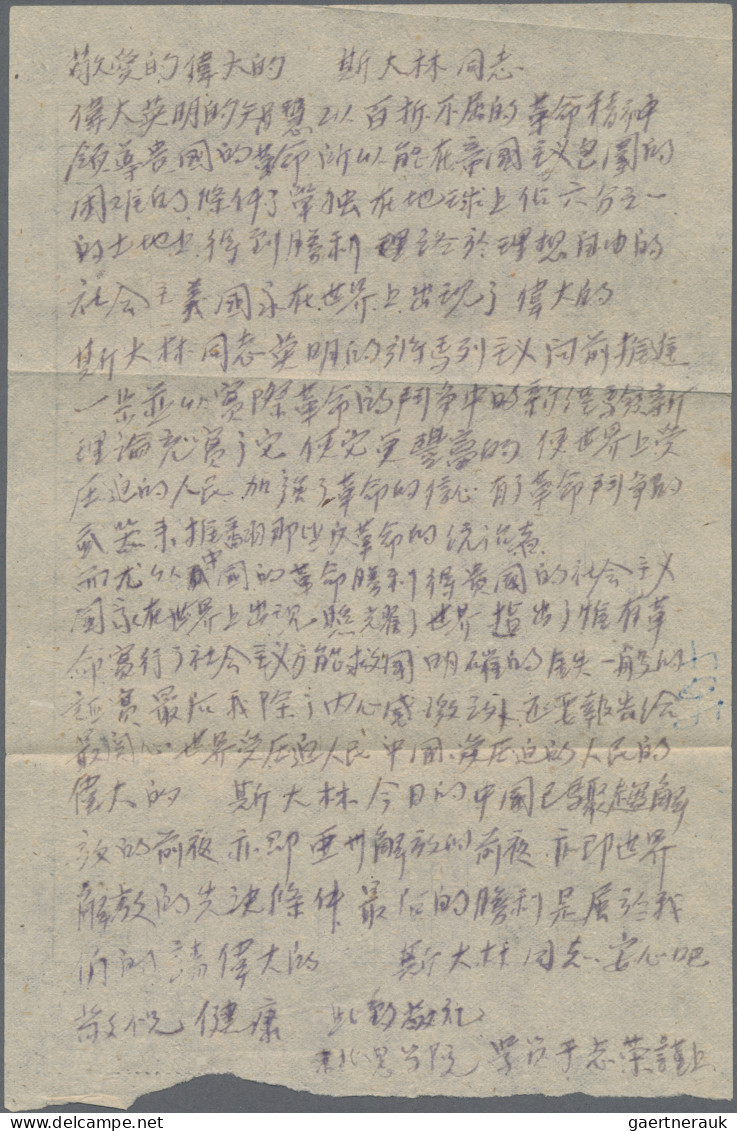 敬愛的偉大的　斯大林同志
偉大英明的智慧以百折不屈的革命精神
領導貴國的革命所以能在帝國主义包圍的
困难的條件下單独在地球上佔六分之一
的土地上得到勝利 於理想自由的
社会主義國家在世界上出現了偉大的
斯大林同志英明的将馬列主义向前推進
一步並以實際革命的鬥争中的新經驗新
理論充實了它 使它更豐富的 使世界上受
压迫的人民加强了革命的信心有了革命鬥争的
武器来推翻那些反革命的统治者
而尤以中國的革命勝利得貴國的社会主义
國家在世界上出現照耀了世界 指出了惟有革
命實行了社会主义方能救國明確的鉄一般的
証實最后我除了内心感激外还要報告給
最関心世界受压迫人民中國受压迫的人民的
偉大的　斯大林今日的中國已 解
放的前夜亦即亜州解放的前夜亦即世界
解放的先决條件最后的勝利是属於我
们的請偉大的　斯大林同志安心吧
敬祝健康　此致敬礼
学院 学員于志荣謹上
gaertnerauk